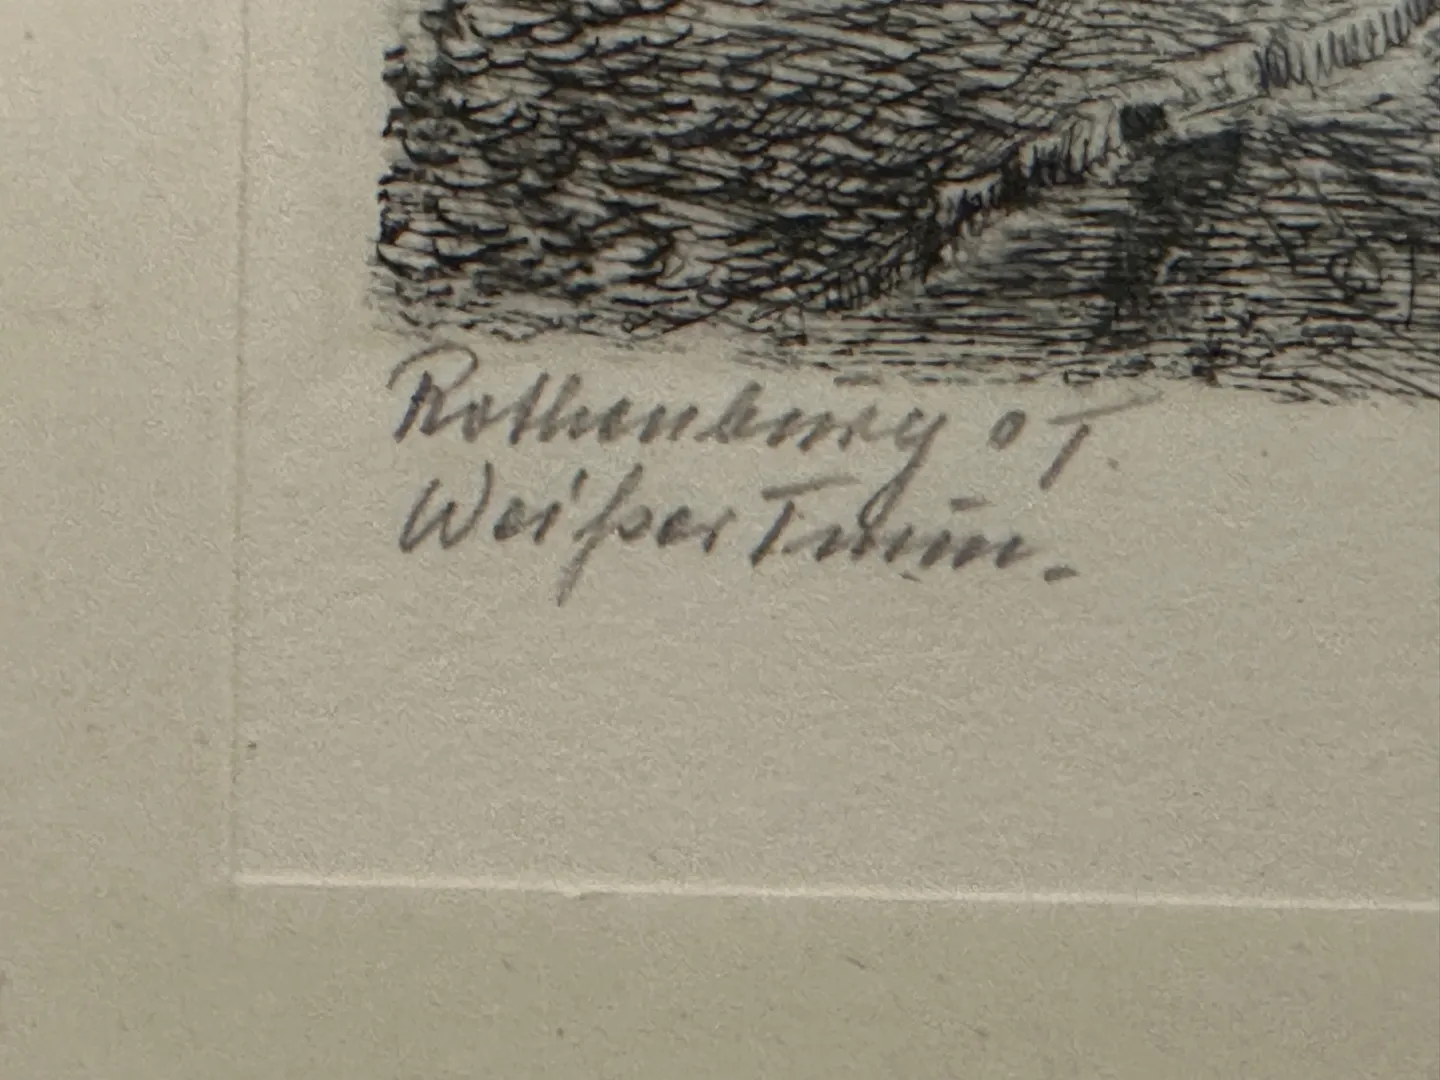 Rothenburg o T.
Weißer Turm.